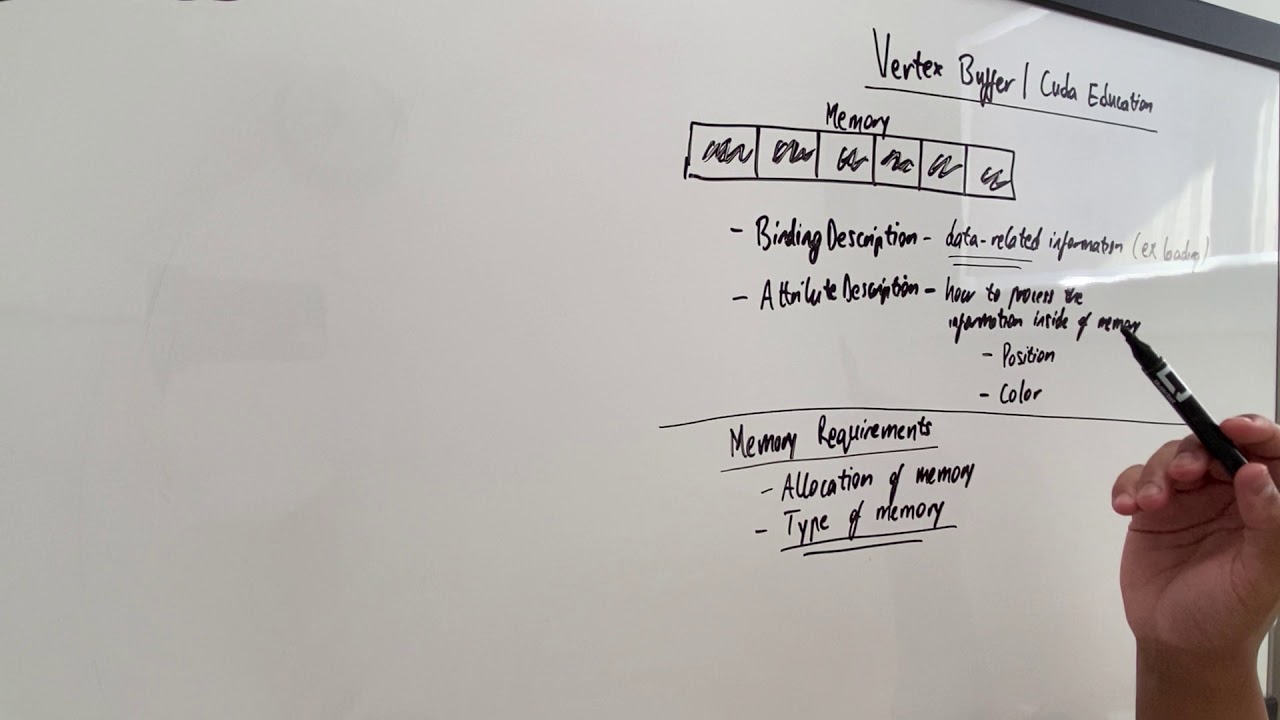 Vertex Buffer | Cuda Education
Memory
- Binding Description - data-related information (ex loading)
- Attribute Description - how to process the
information inside of memory
- Position
- Color
Memory Requirements
- Allocation of memory
- Type of memory